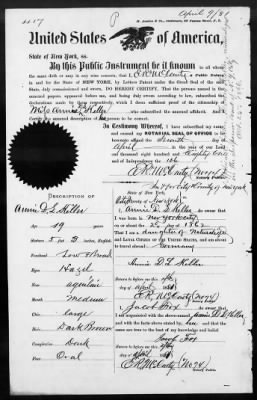 April 9/81
United States of America,
State of New York, ss.
By this Public Instrument be it known to
the same shall or may in any wise concern, that I, E. R. McCarty a Public Notary
in and for the STATE OF NEW YORK, by Letters Patent under the Great Seal of the said
State, duly commissioned and sworn, DO HEREBY CERTIFY, That the persons named in the
annexed papers, appeared before me, and being duly sworn according to law, subscribed the
declarations made by them respectively, which I deem sufficient proof of the citizenship of
Miss Annie D. L. Keller who subscribed the annexed affidavit. And I
further certify the annexed to be correct.
In Testimony Whereof, I have subscribed my name
and caused my NOTARIAL SEAL OF OFFICE to be
hereunto affixed, the Seventh day of
April in the year of our Lord one
thousand eight hundred and Eighty one
and of Independence the
E. R. McCarty
Notary Public,
State of New York,
DESCRIPTION OF
Annie D. L. Keller
Age 19 years
Stature 5 feet 3 inches, English
Forehead Low & Broad
Eyes Hazel
Nose aquiline
Mouth Medium
Chin large
Hair Dark Brown
Complexion Dark
Face Oval
I, Annie D. L. Keller do
was born in New York City
on or about the day of 1862
am a daughter of
and LOYAL CITIZEN OF THE UNITED STATES, and about to travel
Germany
Annie D. L. Keller
Sworn to before me this
day of April 1881
E. R. McCarty
I, Jacob Fox
am acquainted with the above-named Annie D. L. Keller
and with the facts above stated by her and that the
same are true to the best of my knowledge and belief.
Jacob Fox
Sworn to before me this
day of April 1881
E. R. McCarty